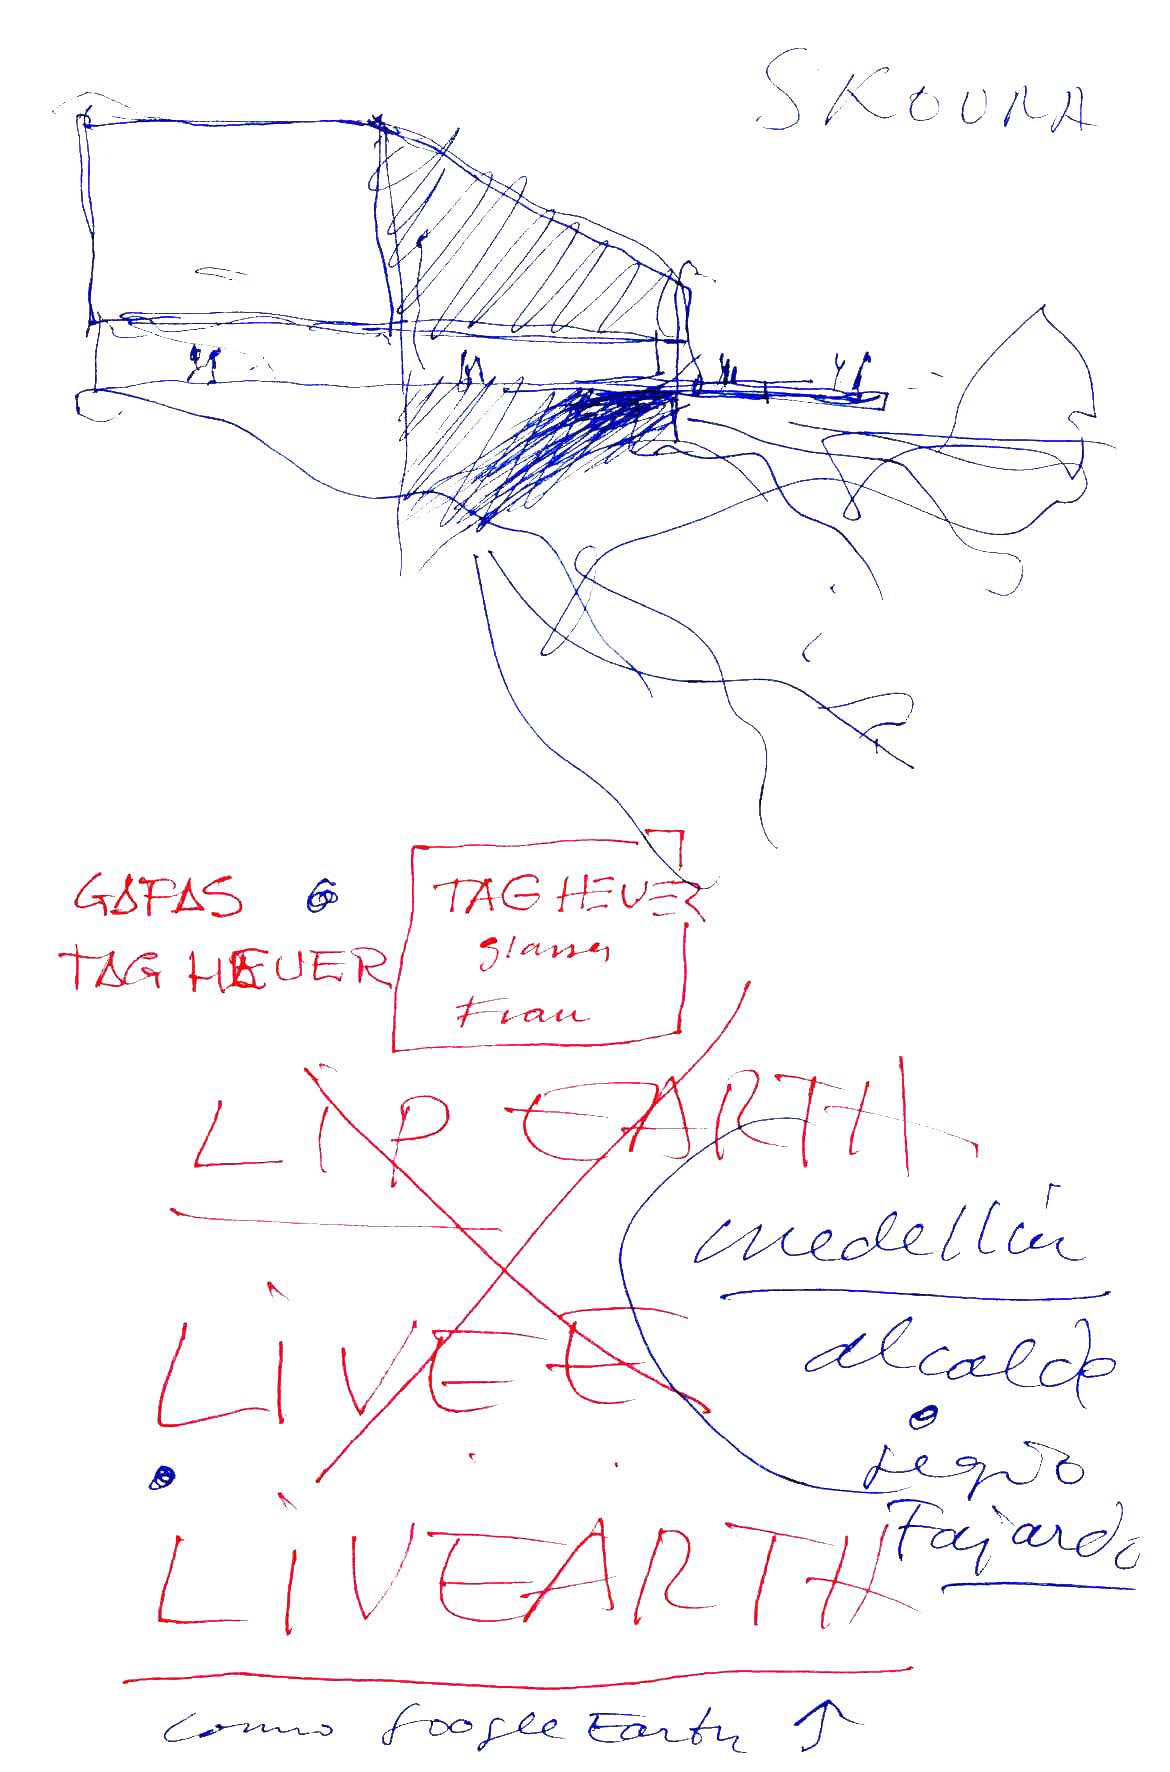 SKOURA
GAFAS
TAG HEUER
TAG HEUER
glasses
Frau
LiP EARTH
medellín
LiVE E
alcalde
Fajardo
LiVEARTH
como Google Earth